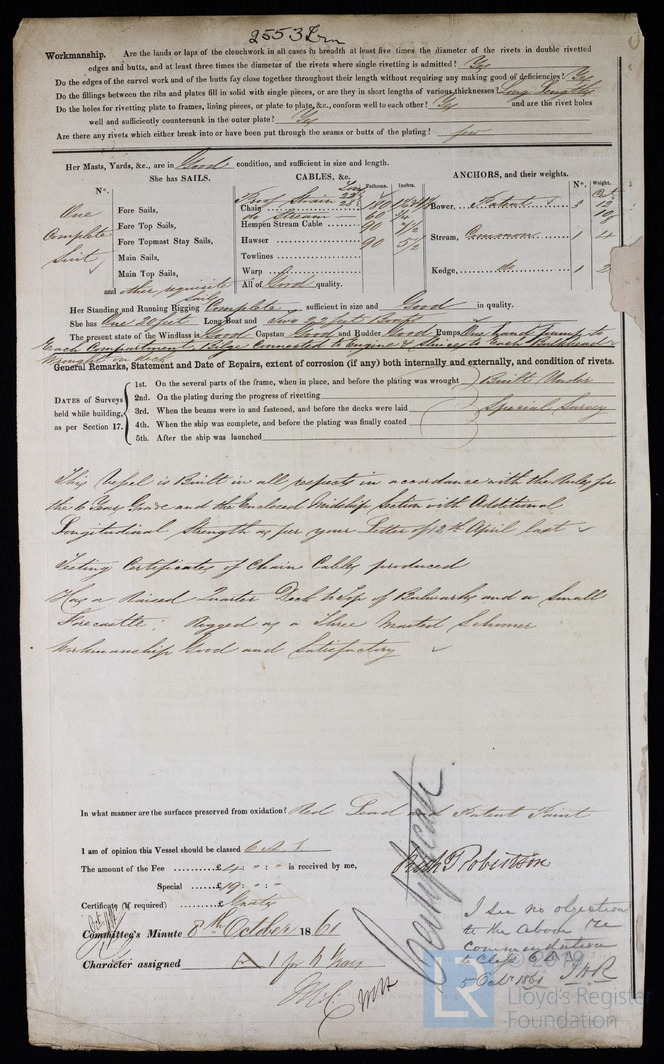 2553 Irn
Workmanship. Are the lands or laps of the clenchwork in all cases in breadth at least five times the diameter of the rivets in double rivetted
edges and butts, and at least three times the diameter of the rivets where single rivetting is admitted? Yes
Do the edges of the carvel work and of the butts fay close together throughout their length without requiring any making good of deficiencies? Yes
Do the fillings between the ribs and plates fill in solid with single pieces, or are they in short lengths of various thicknesses? Long Lengths
Do the holes for rivetting plate to frames, lining pieces, or plate to plate, &c., conform well to each other? Yes and are the rivet holes
well and sufficiently countersunk in the outer plate? Yes
Are there any rivets which either break into or have been put through the seams or butts of the plating? few
Her Masts, Yards, &c., are in Good condition, and sufficient in size and length.
She has SAILS. CABLES, &c. ANCHORS, and their weights.
N°. Fathoms. Inches. N°. Weight.
Proof Strain
One Fore Sails, Chain 180 Bower, Patent 3 12
Complete Fore Top Sails, do Stream 60 3/4 10
Suit, Fore Topmast Stay Sails, Hempen Stream Cable 90 7 1/2
Main Sails, Hawser 90 5 1/2 Stream, Common 1 4
Main Top Sails, Towlines
and other requisite Sails Warp Kedge, do 1 2
All of Good quality.
Her Standing and Running Rigging Complete sufficient in size and Good in quality.
She has One 20 feet Long Boat and Two
The present state of the Windlass is Good Capstan Good and Rudder Good Pumps One hand Pump to
Each Compartment, Bilge Connected to Engine & Sluices to Each Bulkhead
wrought on deck
General Remarks, Statement and Date of Repairs, extent of corrosion (if any) both internally and externally, and condition of rivets.
DATES of Surveys held while building, as per Section 17.
1st. On the several parts of the frame, when in place, and before the plating was wrought Built Under
2nd. On the plating during the progress of rivetting
3rd. When the beams were in and fastened, and before the decks were laid Special Survey
4th. When the ship was complete, and before the plating was finally coated
5th. After the ship was launched
This Vessel is Built in all respects in accordance with the Rules for
the 6 Years Grade and the Enclosed Midship Section with Additional
Longitudinal Strength as per your Letter of 12th April last
Testing Certificates of Chain Cables produced
Has a Raised Quarter Deck to Top of Bulwarks and a Small
Forecastle; Rigged as a Three Masted Schooner
Workmanship Good and Satisfactory
In what manner are the surfaces preserved from oxidation? Red Lead and Patent Paint
I am of opinion this Vessel should be classed 6 A 1
The amount of the Fee £4 : " : " is received by me,
Special £19 : " : "
Robertson
Certificate (if required) £Gratis
Committee's Minute 8th October 1861
Character assigned A 1 for 6 Years
I see no objection
to the above re
commendation
to Class 6 A 1
5 Octr 1861
© 2019
LR
Lloyd's Register
Foundation